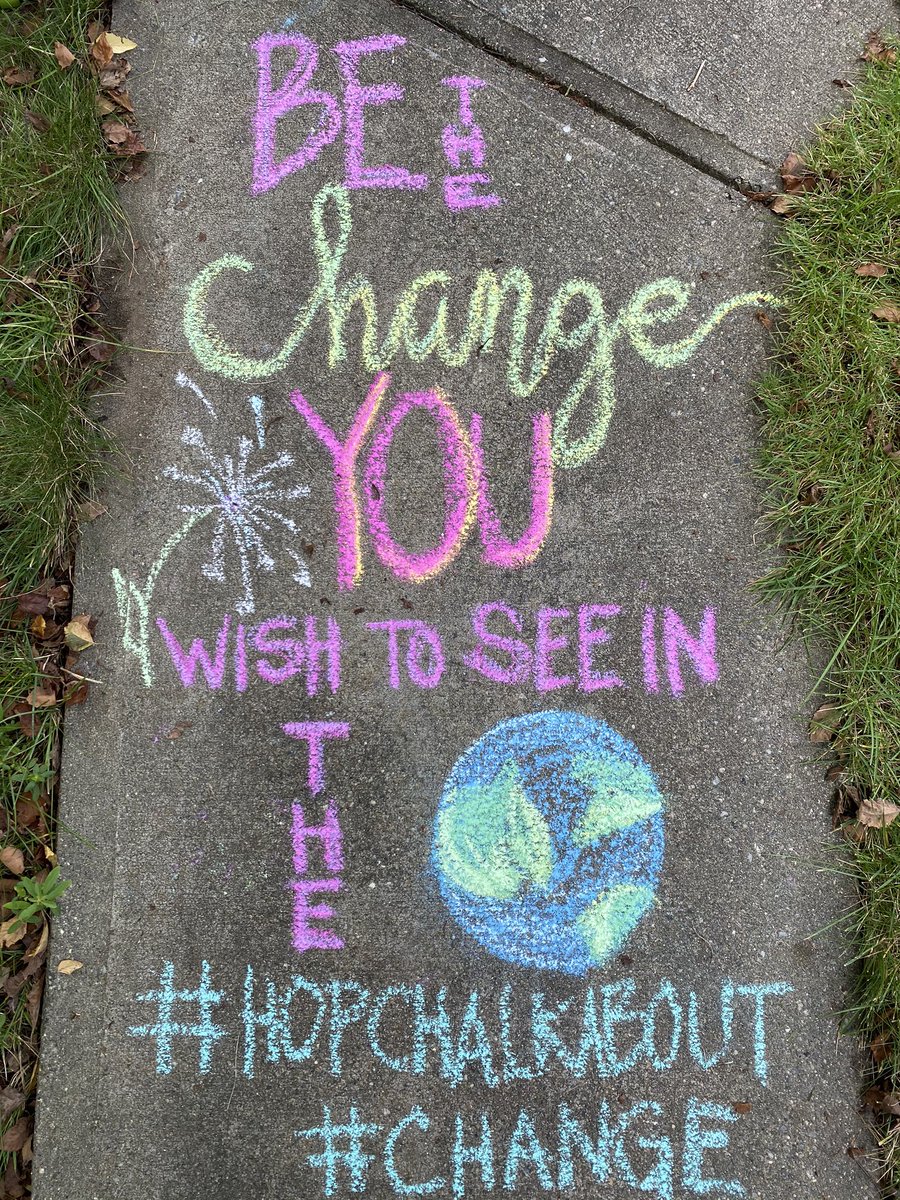 BE THE
change
YOU
WISH TO SEE IN
THE
#HOPCHALKABOUT
#CHANGE